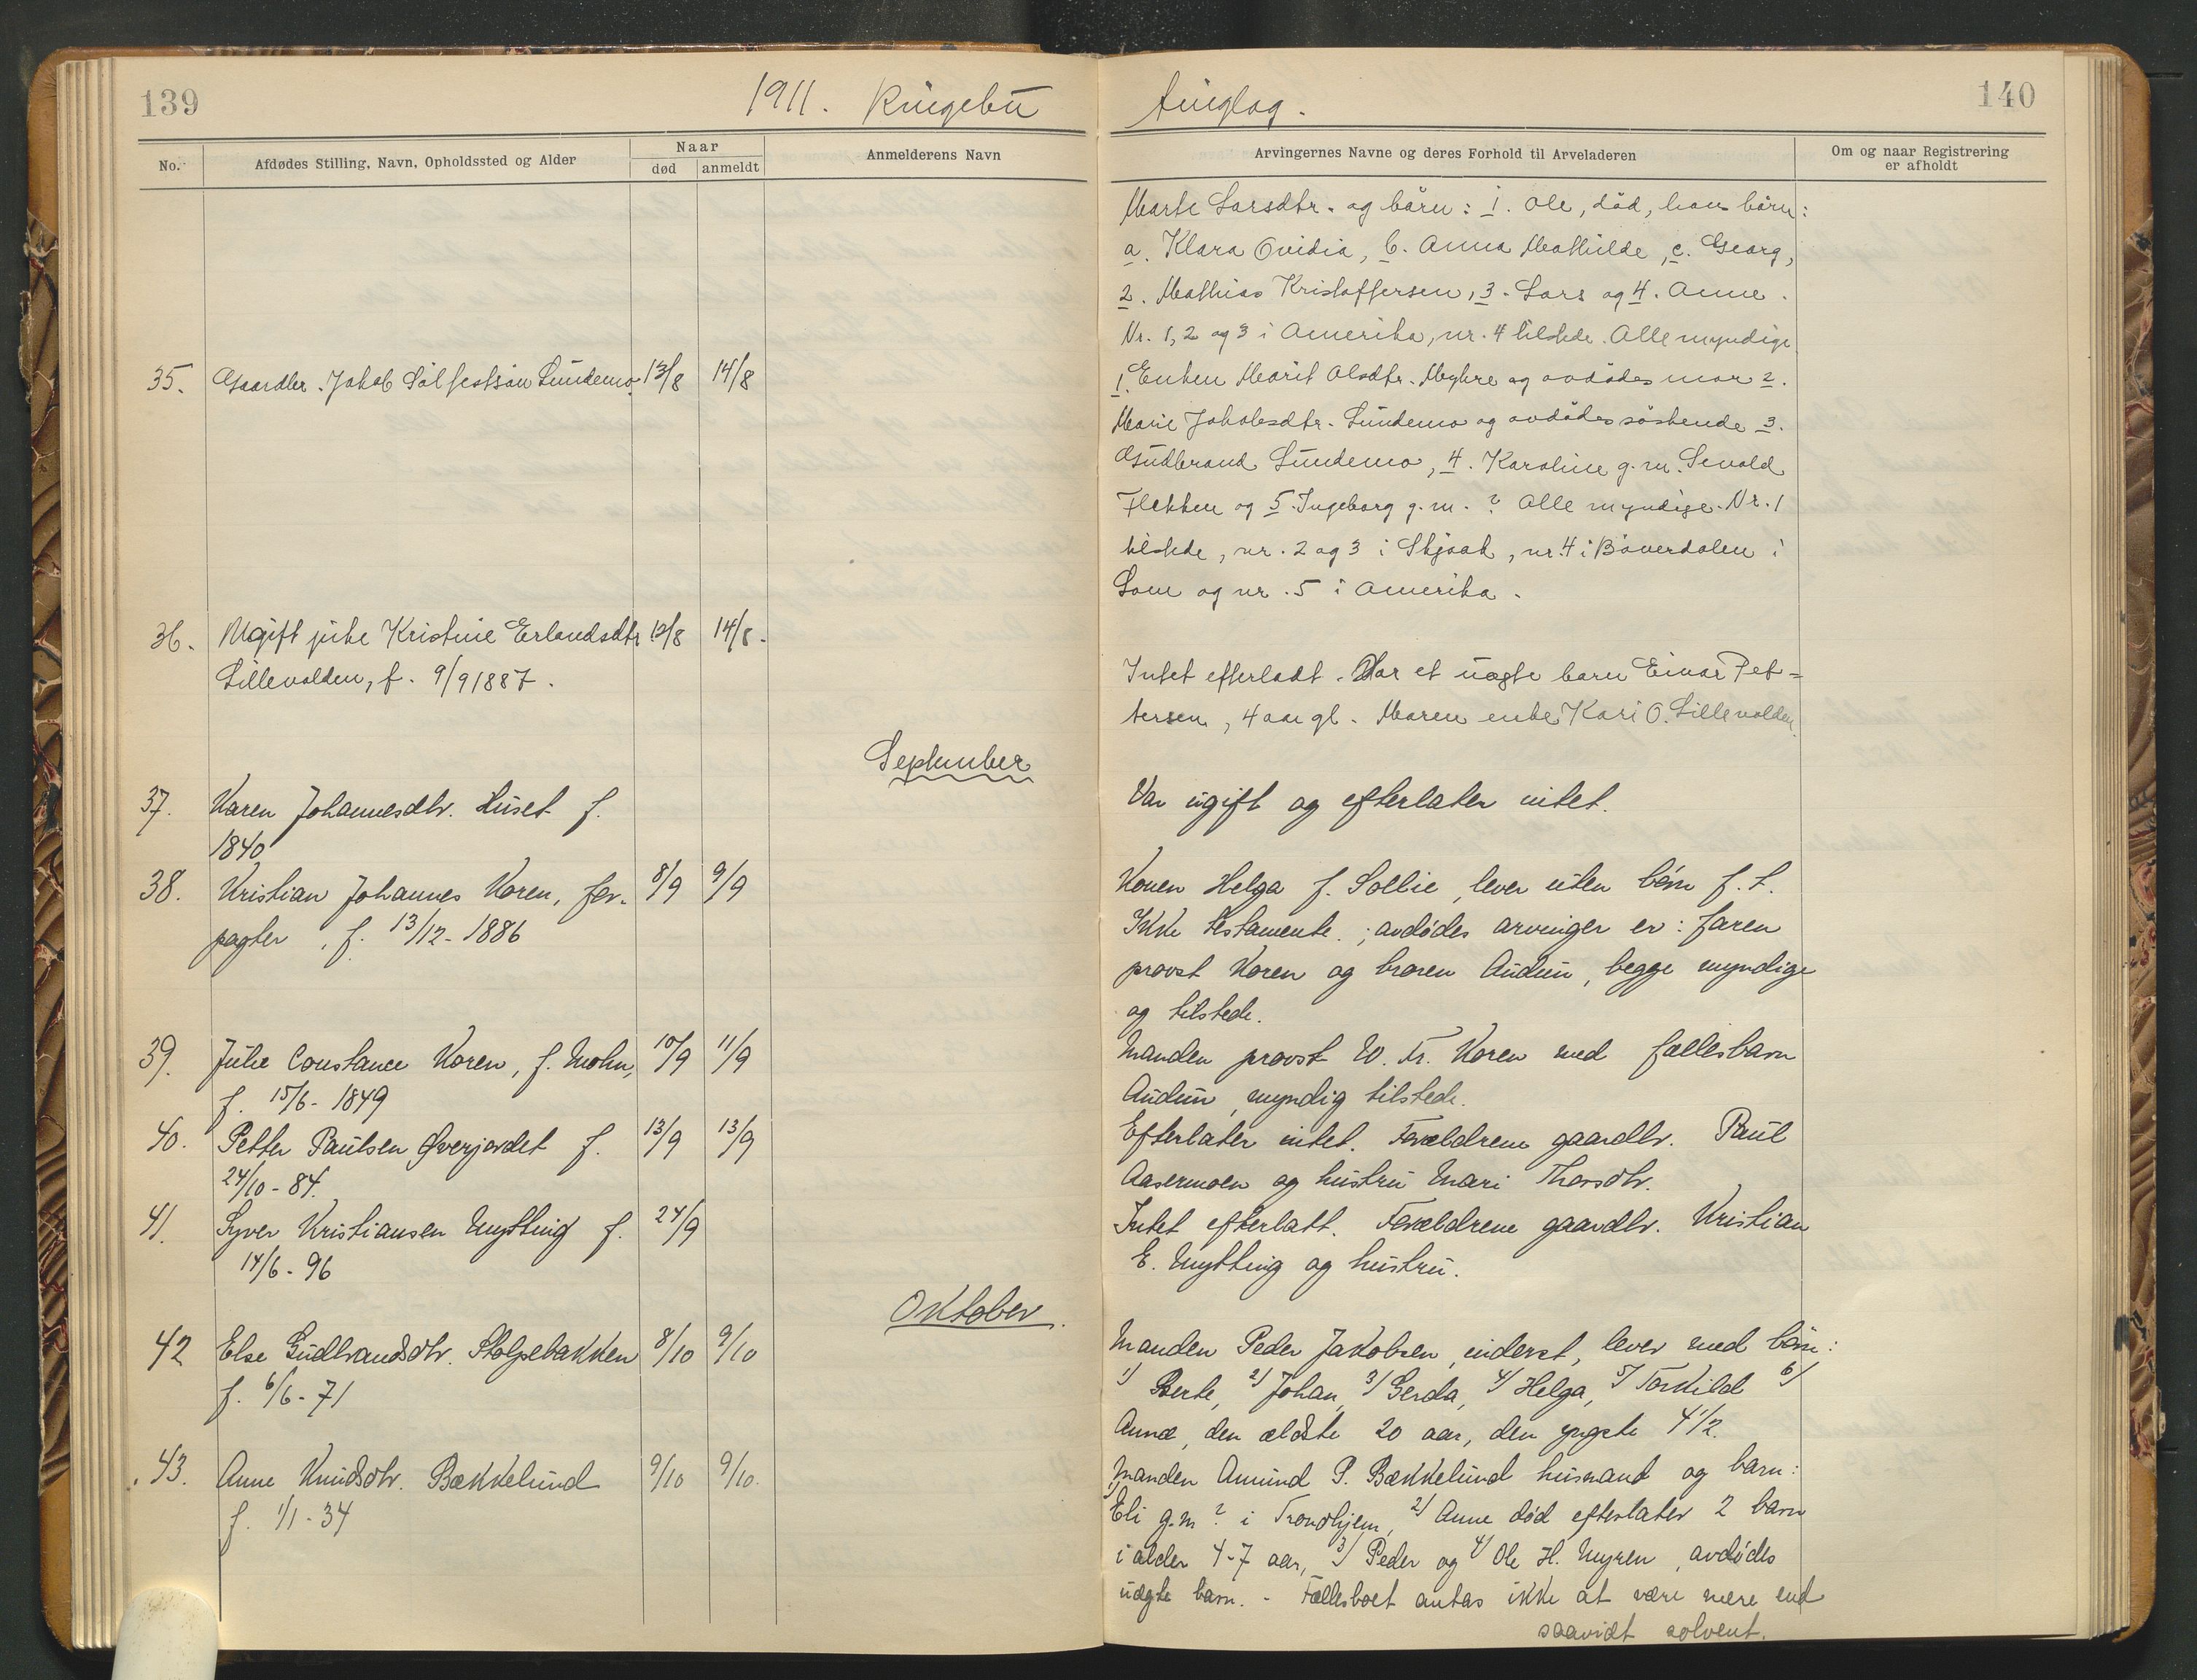 139
1911. Ringebu
tinglag.
140
No.
Afdødes Stilling, Navn, Opholdssted og Alder
Naar
død
anmeldt
Anmelderens Navn
Arvingernes Navne og deres Forhold til Arveladeren
Om og naar Registrering
er afholdt
Marte Larsdtr. og börn: 1. Ole, död, hans börn:
a. Klara Ovidia, b. Anna Mathilde, c. Georg,
2. Mathias Kristoffersen, 3. Lars og 4. Anne.
Nr. 1, 2 og 3 i Amerika, nr. 4 tilstede. Alle myndige
35. Gaardbr. Jakob Sölfestsön Sundemo 13/8 14/8
1. Enken Marit Olsdtr. Myhre og avdödes mor 2.
Marie Jakobsdtr. Sundemo og avdödes söskende 3.
Gudbrand Sundemo, 4. Karoline g.m. Sevald
Flekken og 5. Ingeborg g.m. ? Alle myndige. Nr. 1
tilstede, nr. 2 og 3 i Skjaak, nr. 4 i Böverdalen i
Lom og nr. 5 i Amerika.
36. Ugift pike Kristine Erlandsdtr 12/8 14/8.
Lillevolden, f. 9/9 1887.
Intet efterladt. Har et uægte barn Einar Pet-
tersen, 4 aar gl. Moren enke Kari O. Lillevolden.
September
37. Karen Johannesdtr. Huset f.
1840
Var ugift og efterlater intet.
38. Kristian Johannes Koren, for- 8/9 9/9
pagter, f. 13/12 - 1886
Konen Helga f. Sollie, lever uten børn f. t.
Ikke testamente.; avdødes arvinger er: faren
provst Koren og broren Audun, begge myndige
og tilstede.
39. Julie Constance Koren, f. Mohn, 10/9 11/9
f. 15/6 - 1849
Manden provst W. Fr. Koren med fællesbarn
Audun, myndig tilstede.
40. Petter Paulsen Øverjordet f. 13/9 13/9
24/10 - 84.
Efterlater intet. Forældrene gaardbr. Paul
Aasermoen og hustru Mari Thorsdtr.
41. Syver Kristiansen Mytting f. 24/9
14/6 - 96
Intet efterlatt. Forældrene gaardbr. Kristian
E. Mytting og hustru.
Oktober.
42 Else Gudbrandsdtr. Stolpebakken 8/10 9/10
f. 6/6 - 71
Manden Peder Jakobsen, inderst, lever med børn:
1/ Berte, 2/ Johan, 3/ Gerda, 4/ Helga, 5/ Torkild 6/
Anna, den ældste 20 aar, den yngste 4 1/2.
43. Anne Knudsdtr. Bækkelund 9/10 9/10.
f. 1/1 - 34
Manden Amund P. Bækkelund husmand og barn:
1/ Eli g.m ? i Trondhjem, 2/ Anne død efterlater 2 barn
i alder 4-7 aar, 3/ Peder og 4/ Ole H. Myren, avdødes
uægte barn. - Fællesboet antas ikke at være mere end
saavidt solvent.